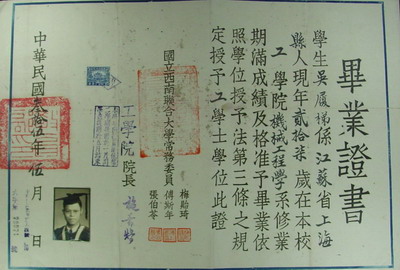 畢業證書
學生吳履梯係江蘇省上海
縣人現年貳拾柒歲在本校
工學院機械工程學系修業
期滿成績及格准予畢業依
照學位授予法第三條之規
定授予工學士學位此證
國立西南聯合大學常務委員
梅貽琦
傅斯年
張伯苓
工學院院長
施嘉煬
中華民國叁拾伍年伍月 日